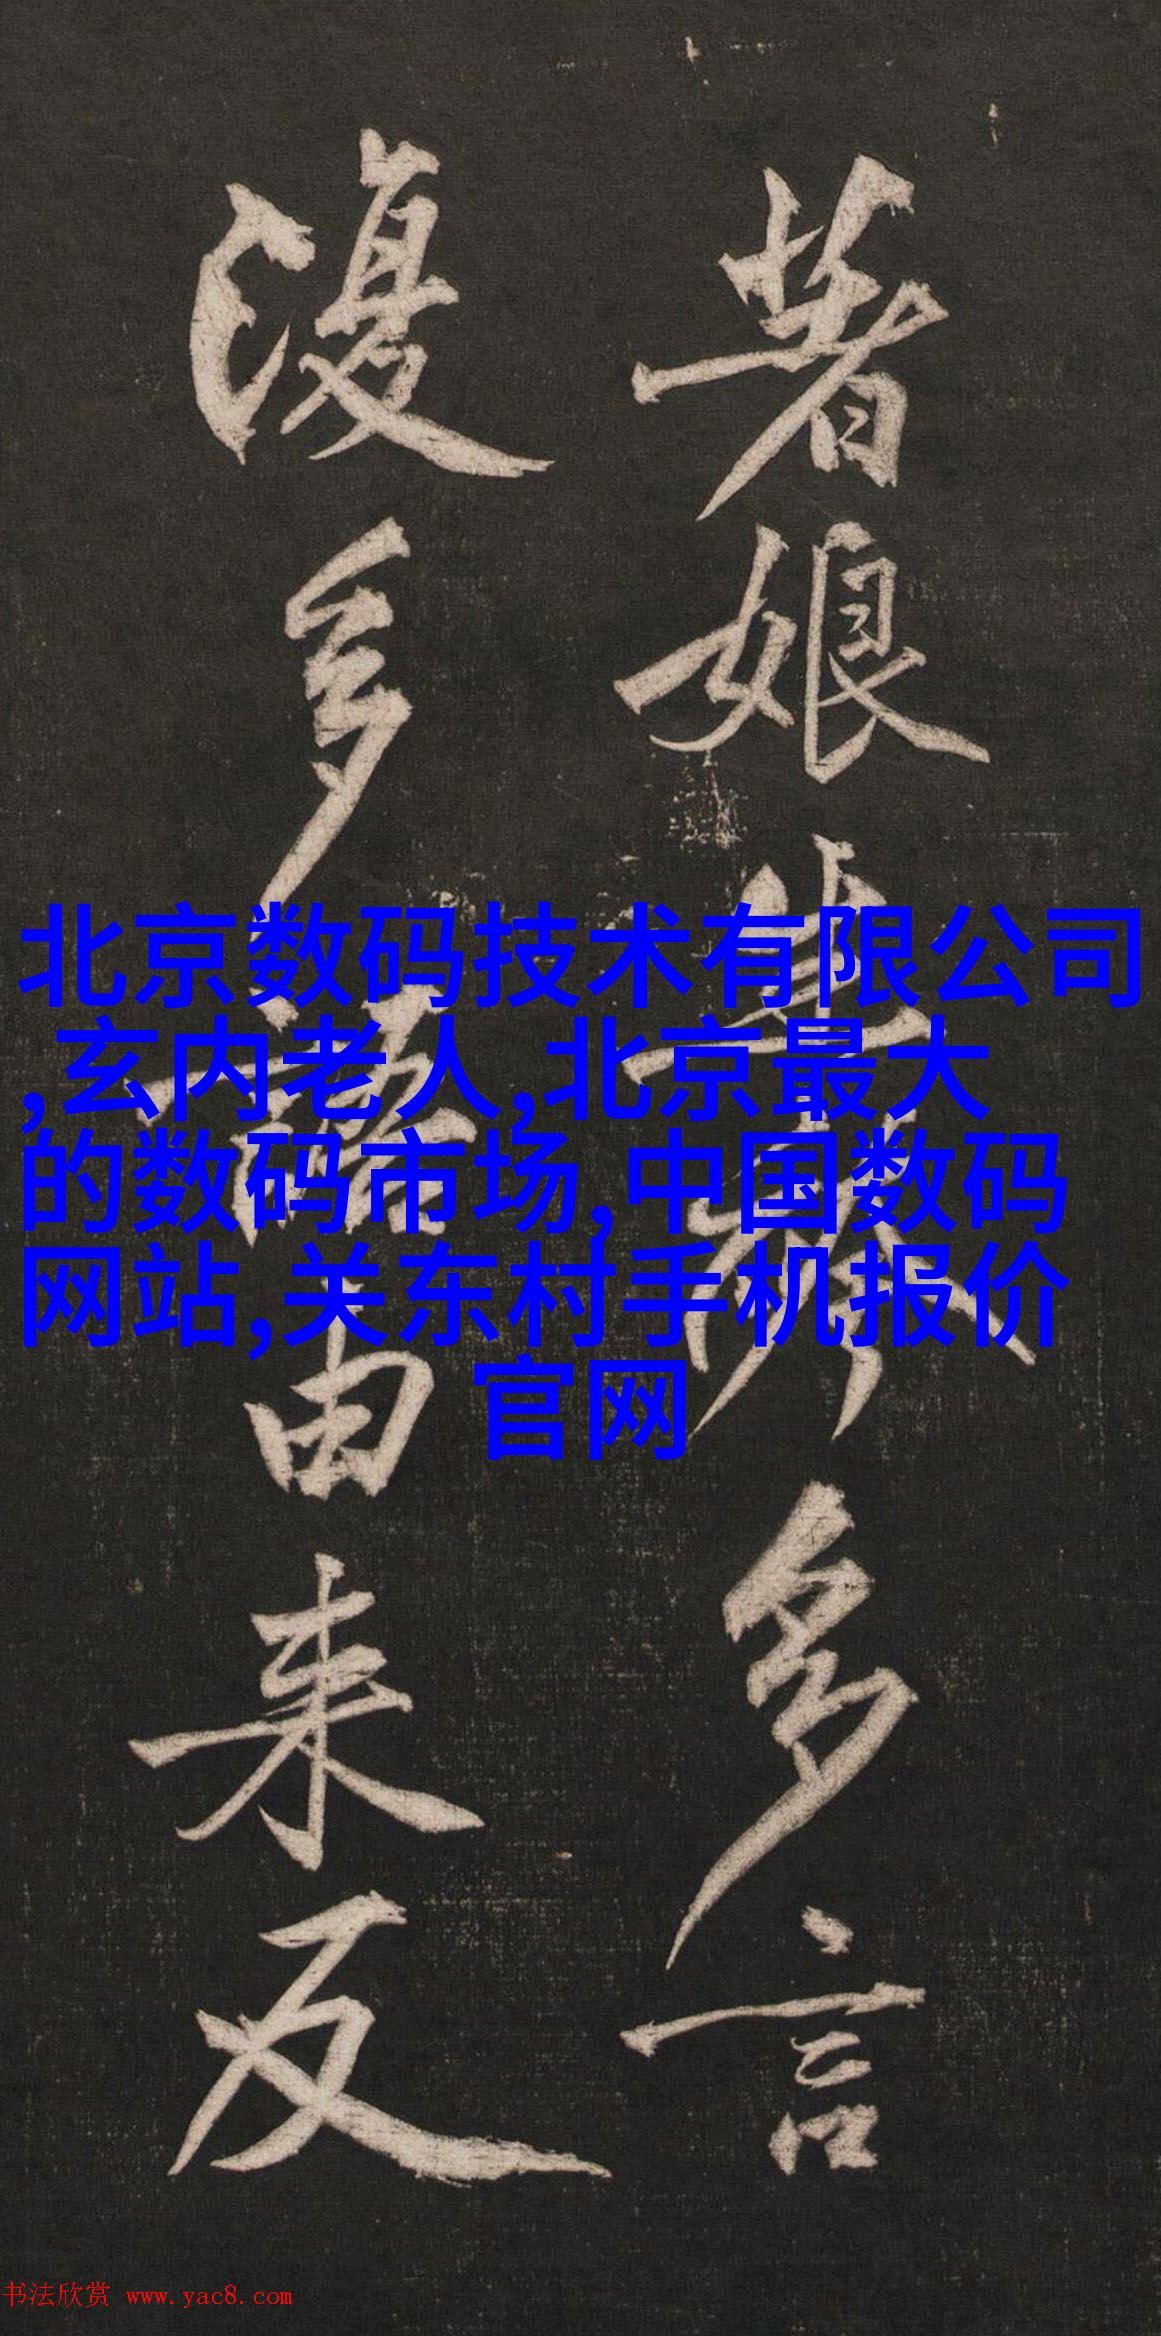 娘
多言
多語由来反
北京数码技术有限公司
,玄内老人,北京最大
的数码市场,中国数码
网站,关东村手机报价
官网
书法欣赏 www.yac8.com